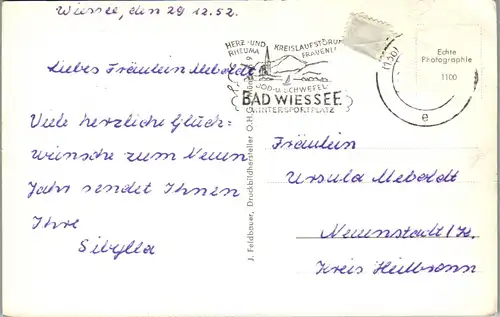 Wiessee, den 29.12.52.
Liebes Fräulein Meboldt
Viele herzliche Glück-
wünsche zum Neuen
Jahr sendet Ihnen
Ihre
Sibylla
HERZ- UND
RHEUMA
KREISLAUFSTÖRUN
FRAUENL
JOD-U. SCHWEFEL
BAD WIESSEE
WINTERSPORTPLATZ
e
Echte
Photographie
1100
J. Feldbauer, Druckbildhersteller O.H.G. München 9
Fräulein
Ursula Meboldt
Neuenstadt/K.
Kreis Heilbronn